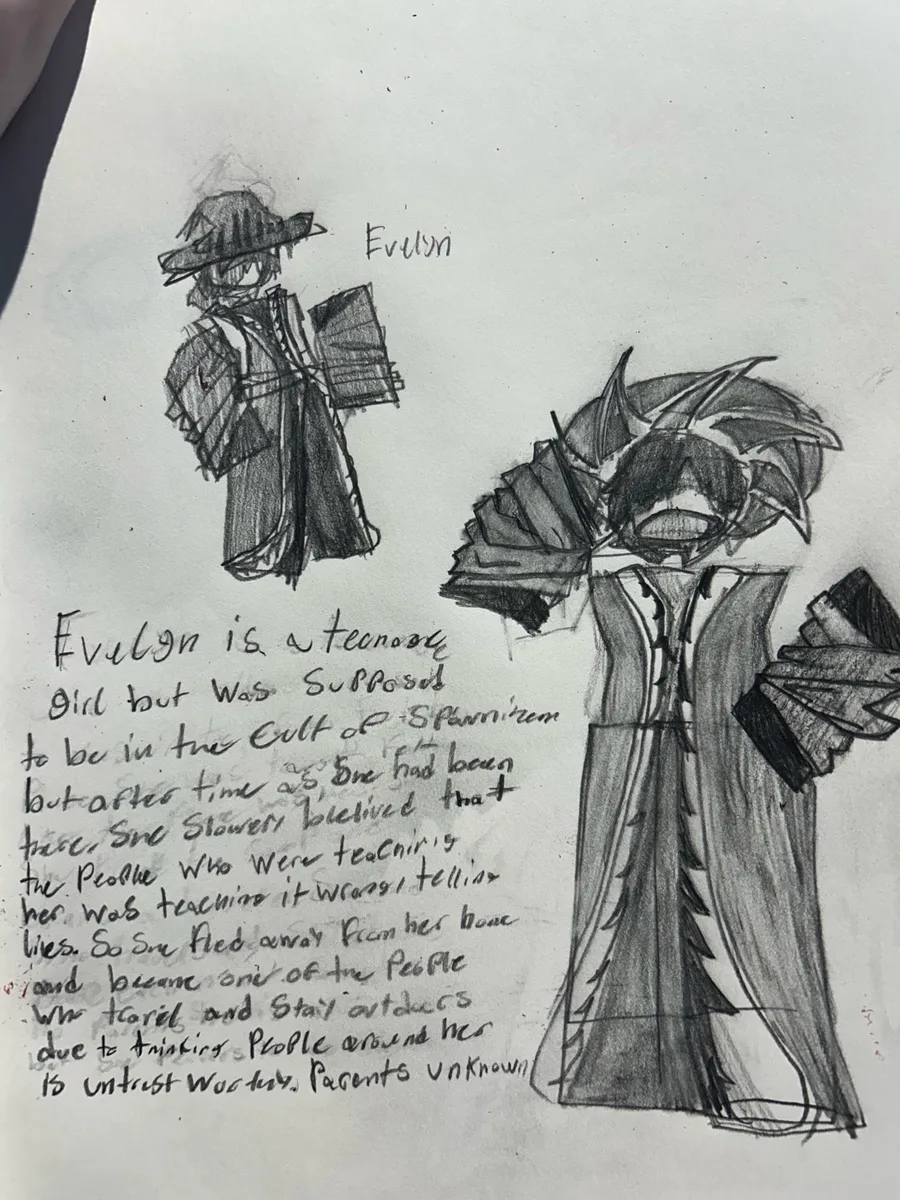 Evelyn
Evelyn is a teenage
girl but was supposed
to be in the Cult of
but after time as She had been
there, She Slowery belelived that
the People who were teaching
her was teaching it wrong, telling
lies. So She fled away from her home
and became one of the People
who travel and Stay outdoers
due to thinking People around her
is untrustworthy. Parents unknown